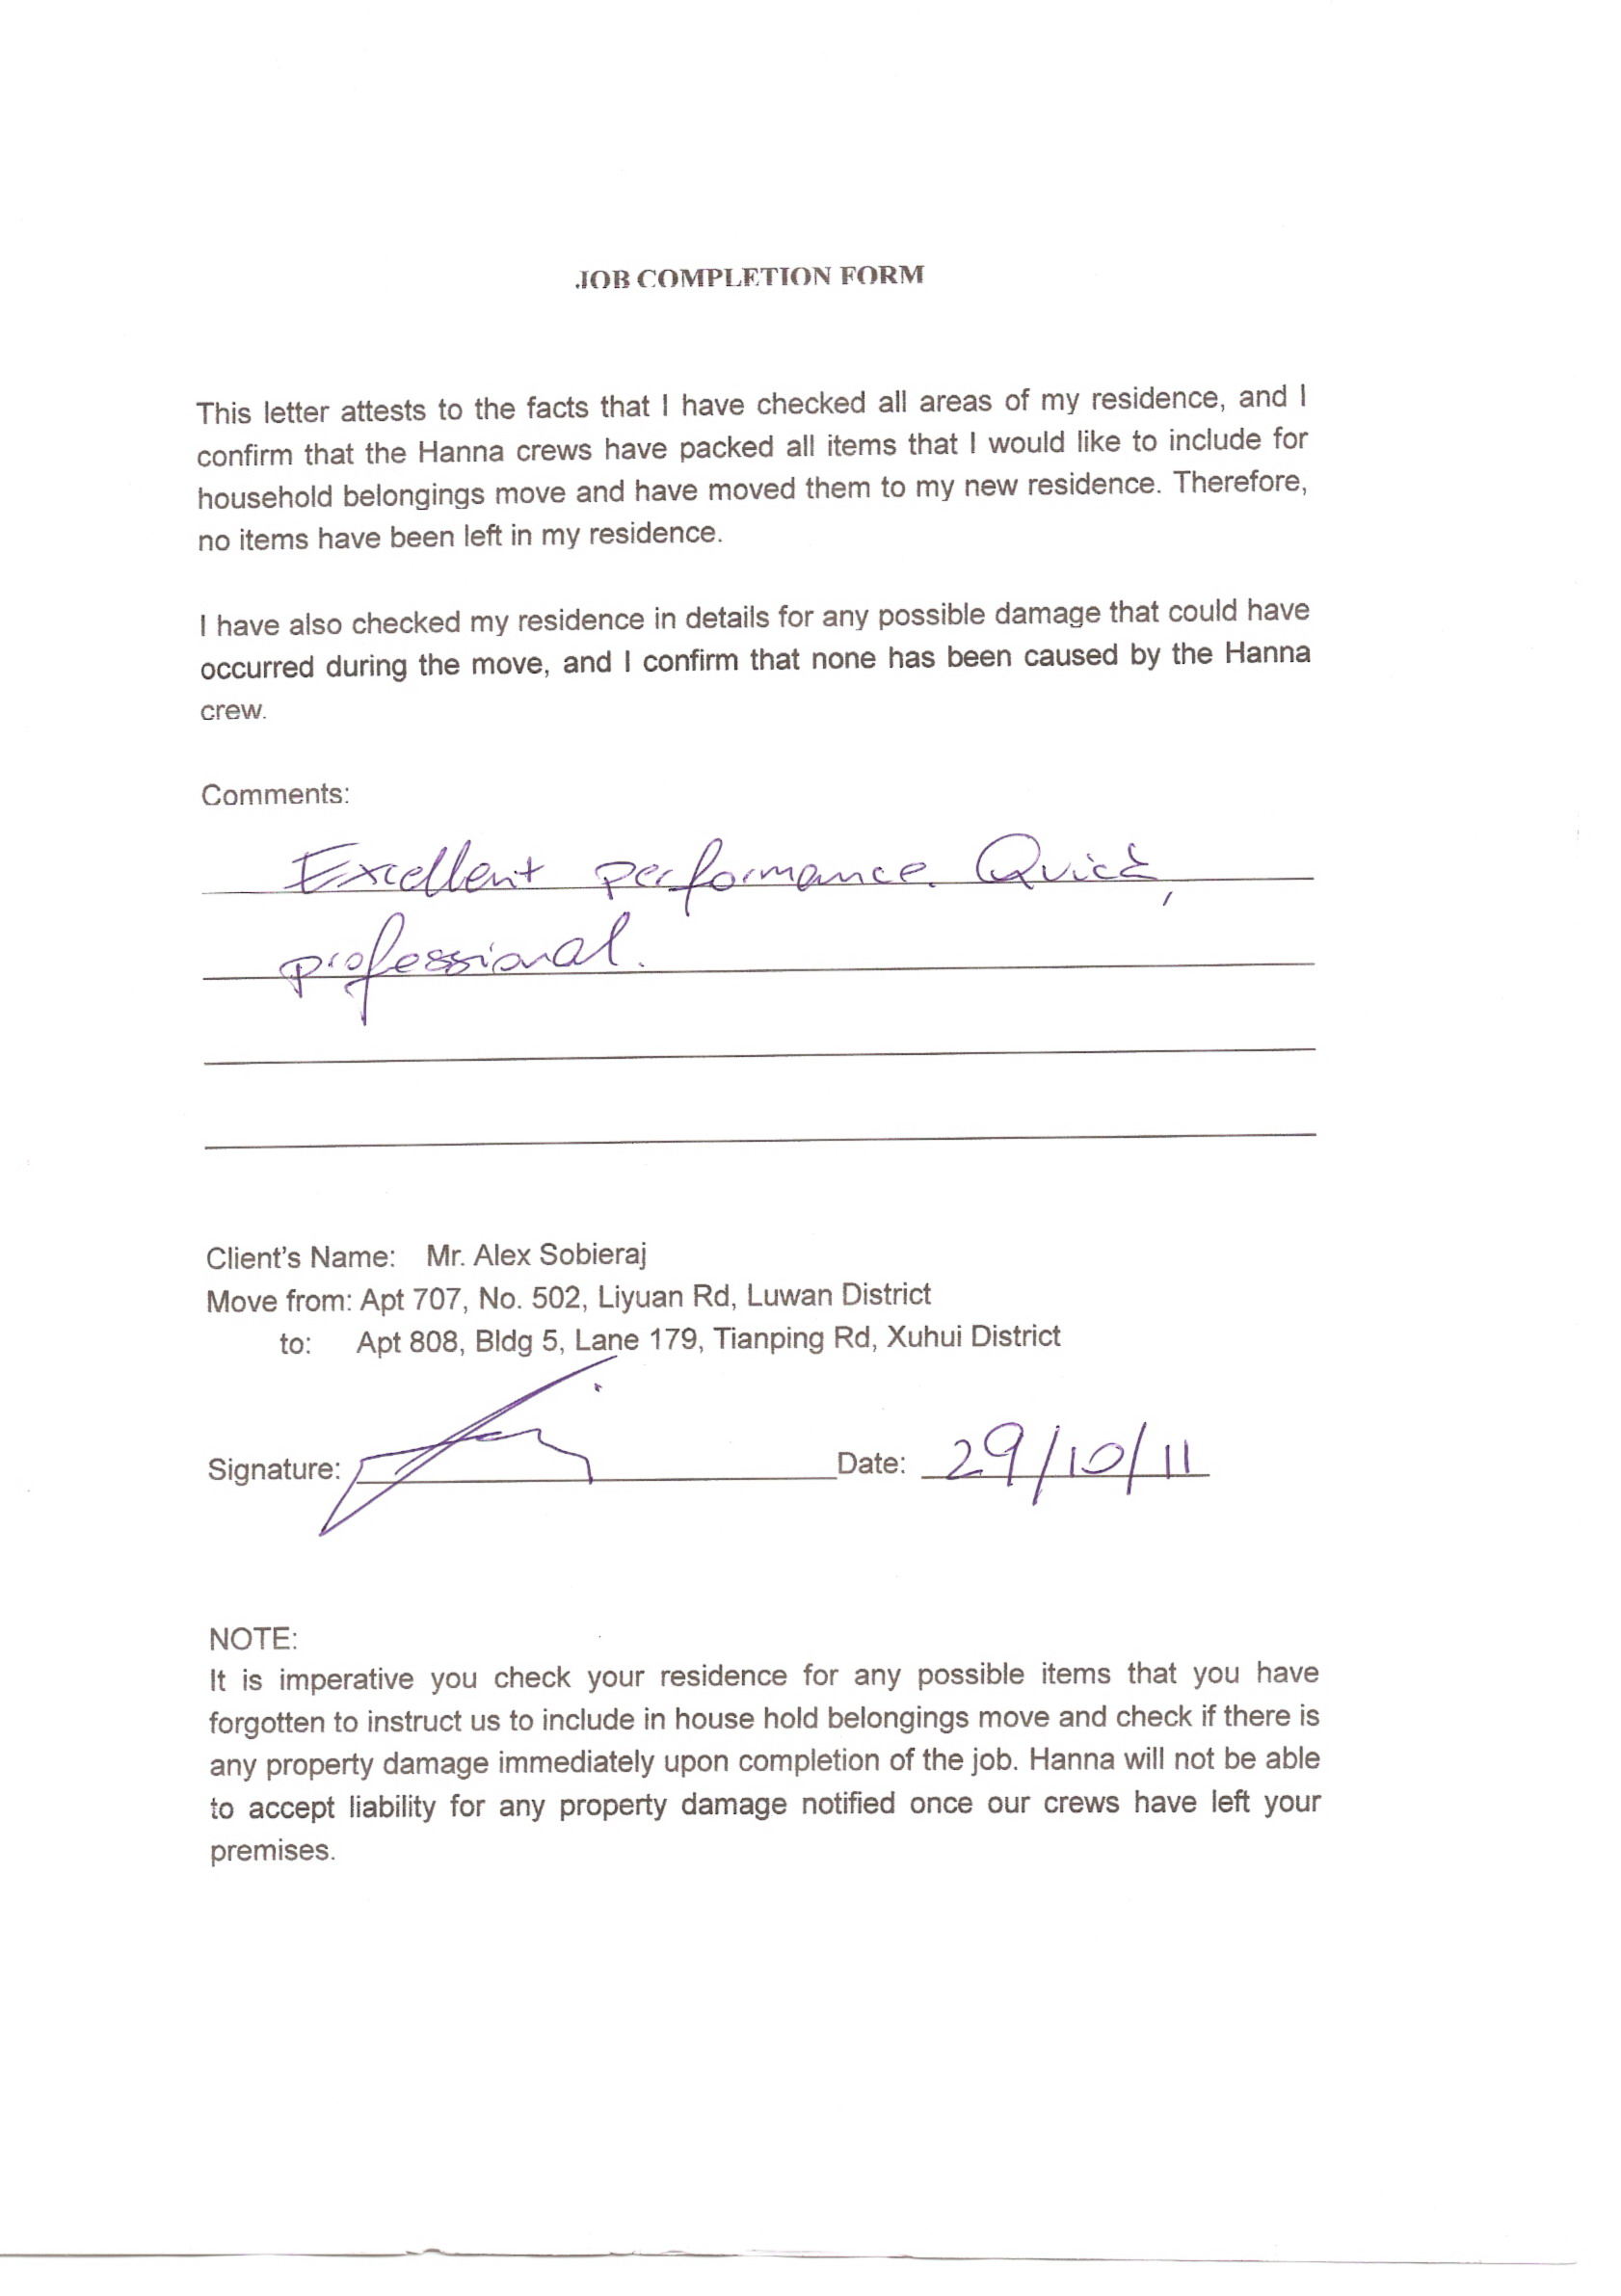 JOB COMPLETION FORM
This letter attests to the facts that I have checked all areas of my residence, and I
confirm that the Hanna crews have packed all items that I would like to include for
household belongings move and have moved them to my new residence. Therefore,
no items have been left in my residence.
I have also checked my residence in details for any possible damage that could have
occurred during the move, and I confirm that none has been caused by the Hanna
crew.
Comments:
Excellent performance. Quick,
professional.
Client's Name: Mr. Alex Sobieraj
Move from: Apt 707, No. 502, Liyuan Rd, Luwan District
to: Apt 808, Bldg 5, Lane 179, Tianping Rd, Xuhui District
Signature: Date: 29/10/11
NOTE:
It is imperative you check your residence for any possible items that you have
forgotten to instruct us to include in house hold belongings move and check if there is
any property damage immediately upon completion of the job. Hanna will not be able
to accept liability for any property damage notified once our crews have left your
premises.